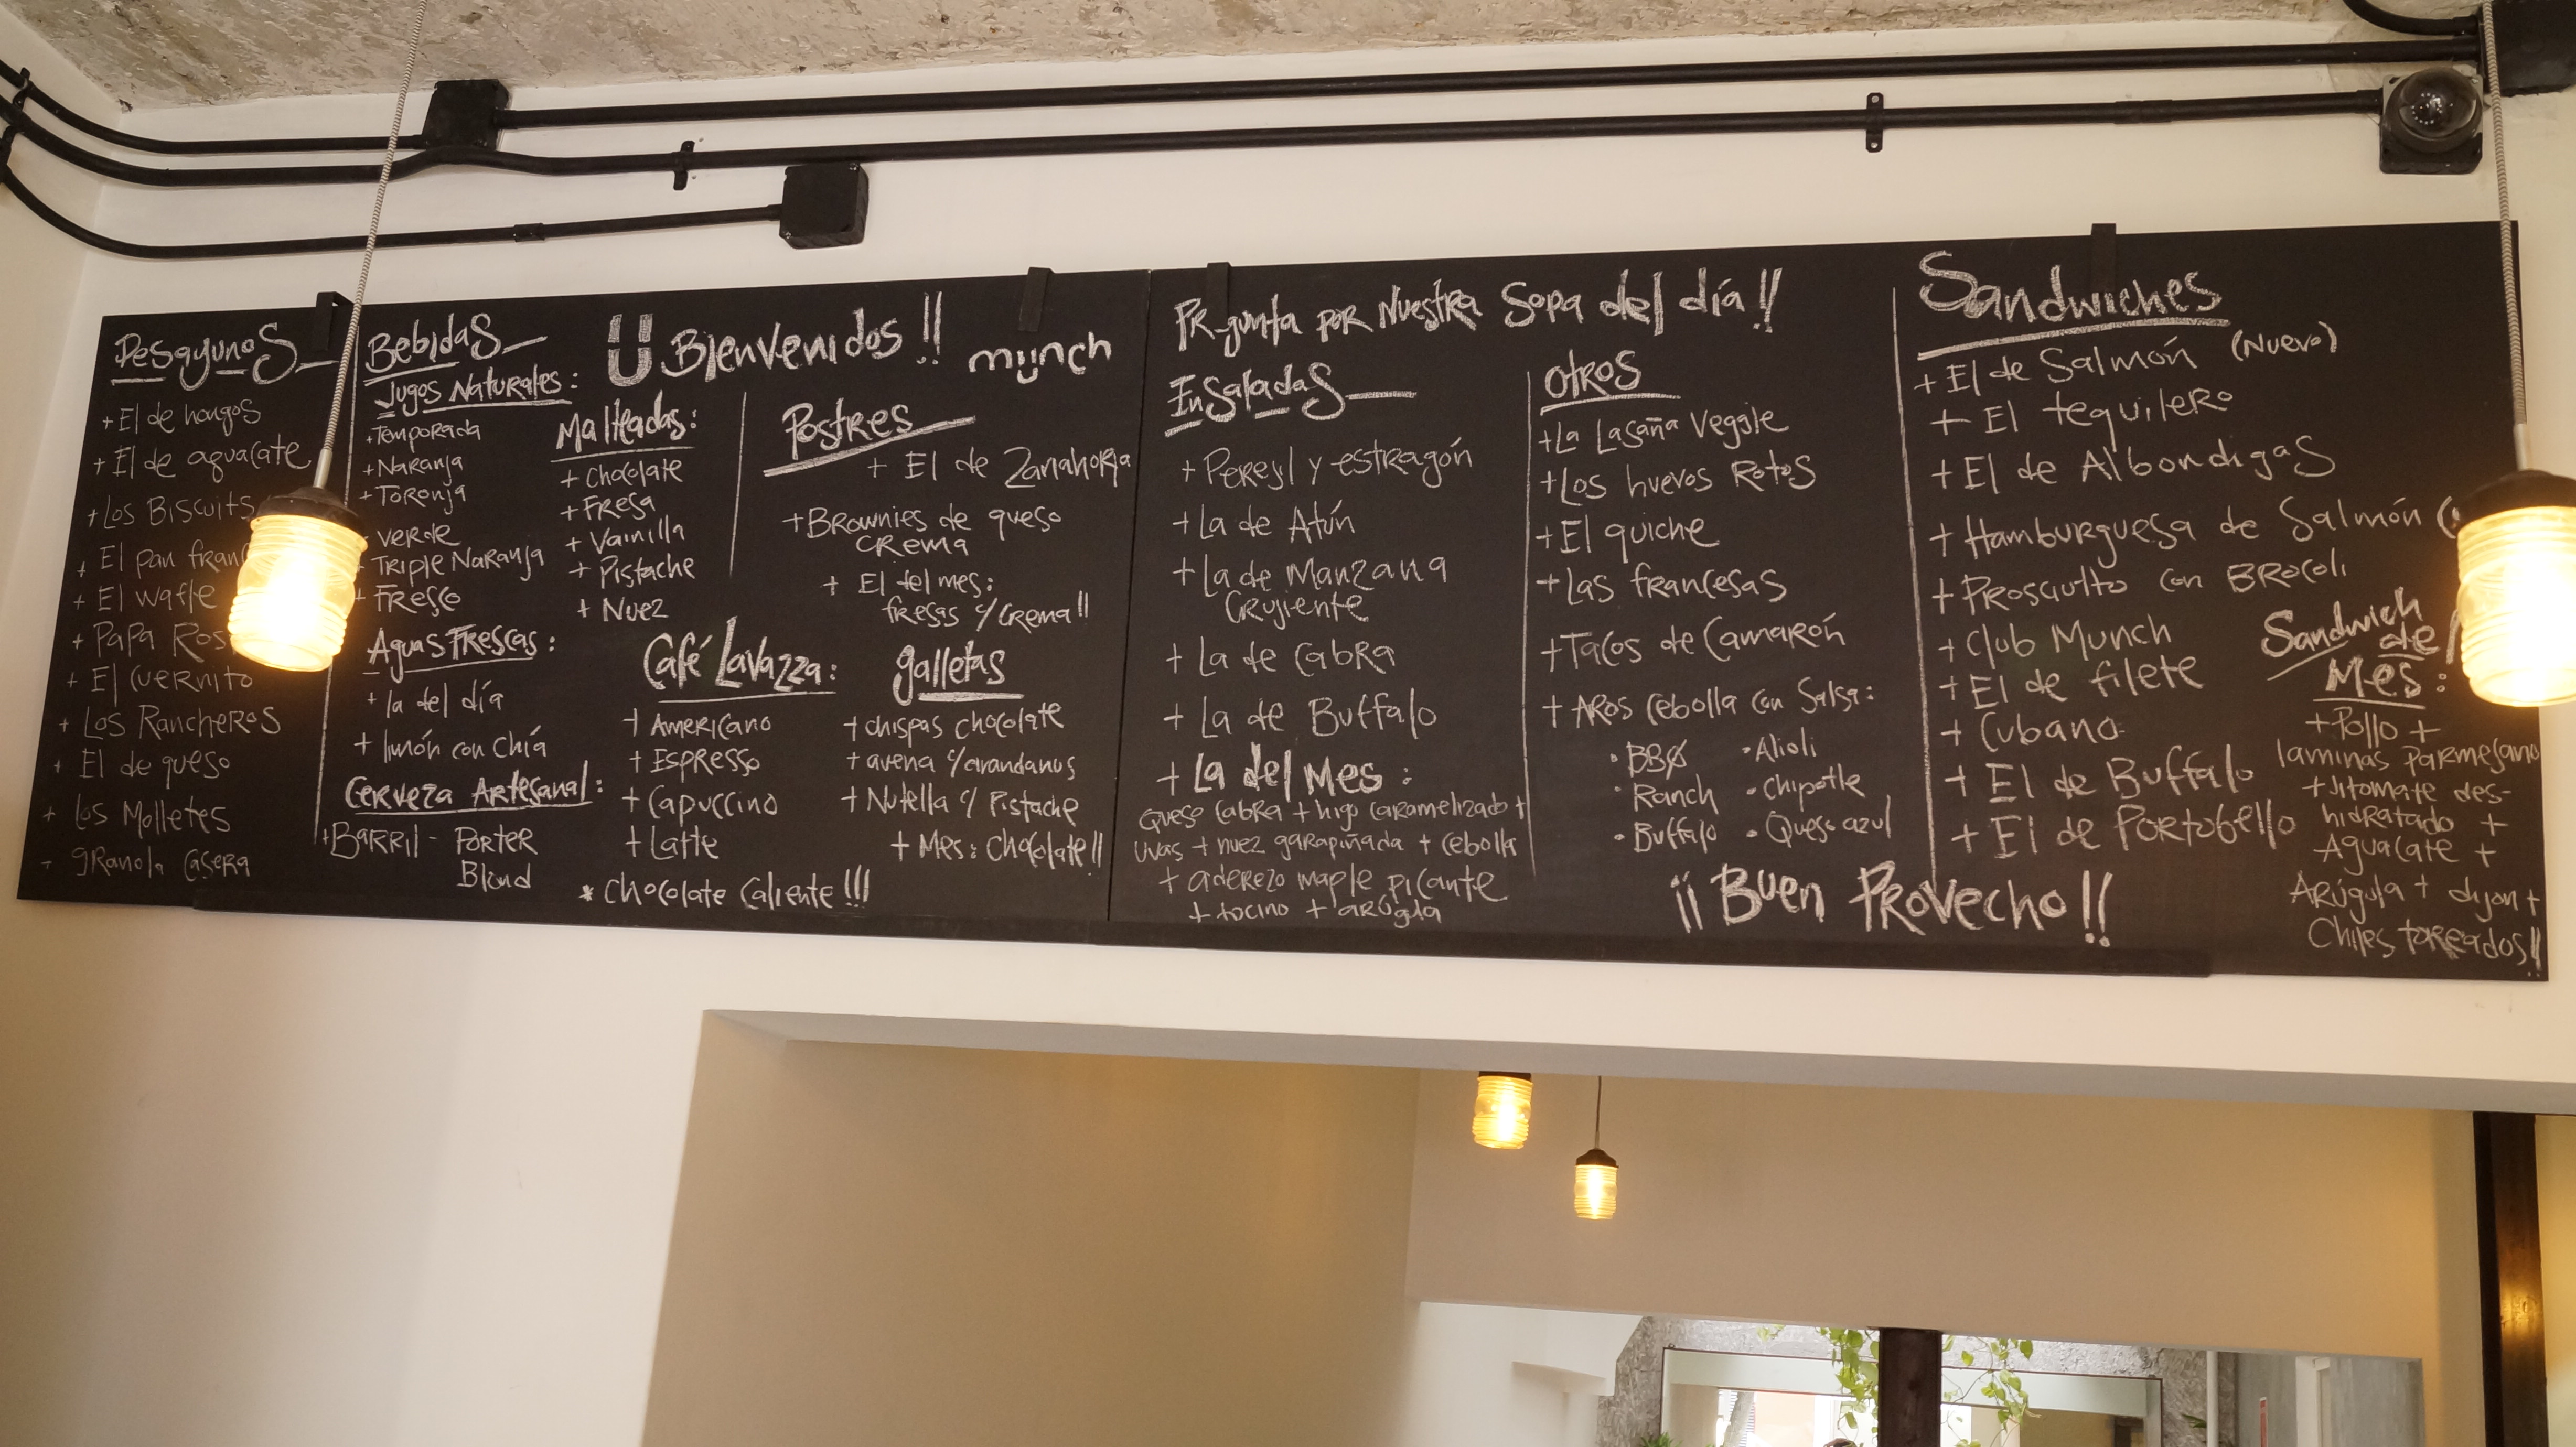 Desayunos
+ El de hongos
+ El de aguacate
+ Los Biscuits
+ El pan
+ El waffle
+ Papa
+ El cuernito
+ Los Rancheros
+ El de queso
+ Los Molletes
+ granola casera
Bebidas
Jugos Naturales:
+ Temporada
+ Naranja
+ Toronja
verde
+ Triple Naranja
+ Fresco
Aguas Frescas:
+ la del día
+ limón con chía
Cerveza Artesanal:
+ Barril - Porter
Blond
Bienvenidos!!
münch
Malteadas:
+ Chocolate
+ Fresa
+ Vainilla
+ Pistache
+ Nuez
Postres
+ El de Zanahoria
+ Brownies de queso
crema
+ El del mes:
fresas c/crema!!
Café Lavazza:
+ Americano
+ Espresso
+ Capuccino
+ Latte
* Chocolate Caliente!!!
galletas
+ chispas chocolate
+ avena c/arandanos
+ Nutella c/ Pistache
+ Mes: Chocolate!!
Pregunta por Nuestra Sopa del día!!
Ensaladas
+ Pereyl y estragón
+ La de Atún
+ La de Manzana
Crujiente
+ La de Cabra
+ La de Buffalo
+ La del Mes:
Queso Cabra + higo caramelizado +
Uvas + nuez garapiñada + cebolla
+ aderezo maple picante
+ tocino + arúgla
Otros
+ La Lasaña Veggie
+ Los huevos Rotos
+ El quiche
+ Las francesas
+ Tacos de Camarón
+ Aros cebolla con Salsa:
• BBQ • Alioli
• Ranch • Chipotle
• Buffalo • Queso azul
¡¡Buen Provecho!!
Sandwiches
+ El de Salmón (Nuevo)
+ El tequilero
+ El de Albondigas
+ Hamburguesa de Salmón
+ Prosciutto con Brocoli
+ Club Munch
+ El de filete
+ Cubano
+ El de Buffalo
+ El de Portobello
Sandwich
del
Mes:
+ Pollo +
laminas parmesano
+ Jitomate des-
hidratado +
Aguacate +
Arúgula + dijon +
Chiles toreados!!